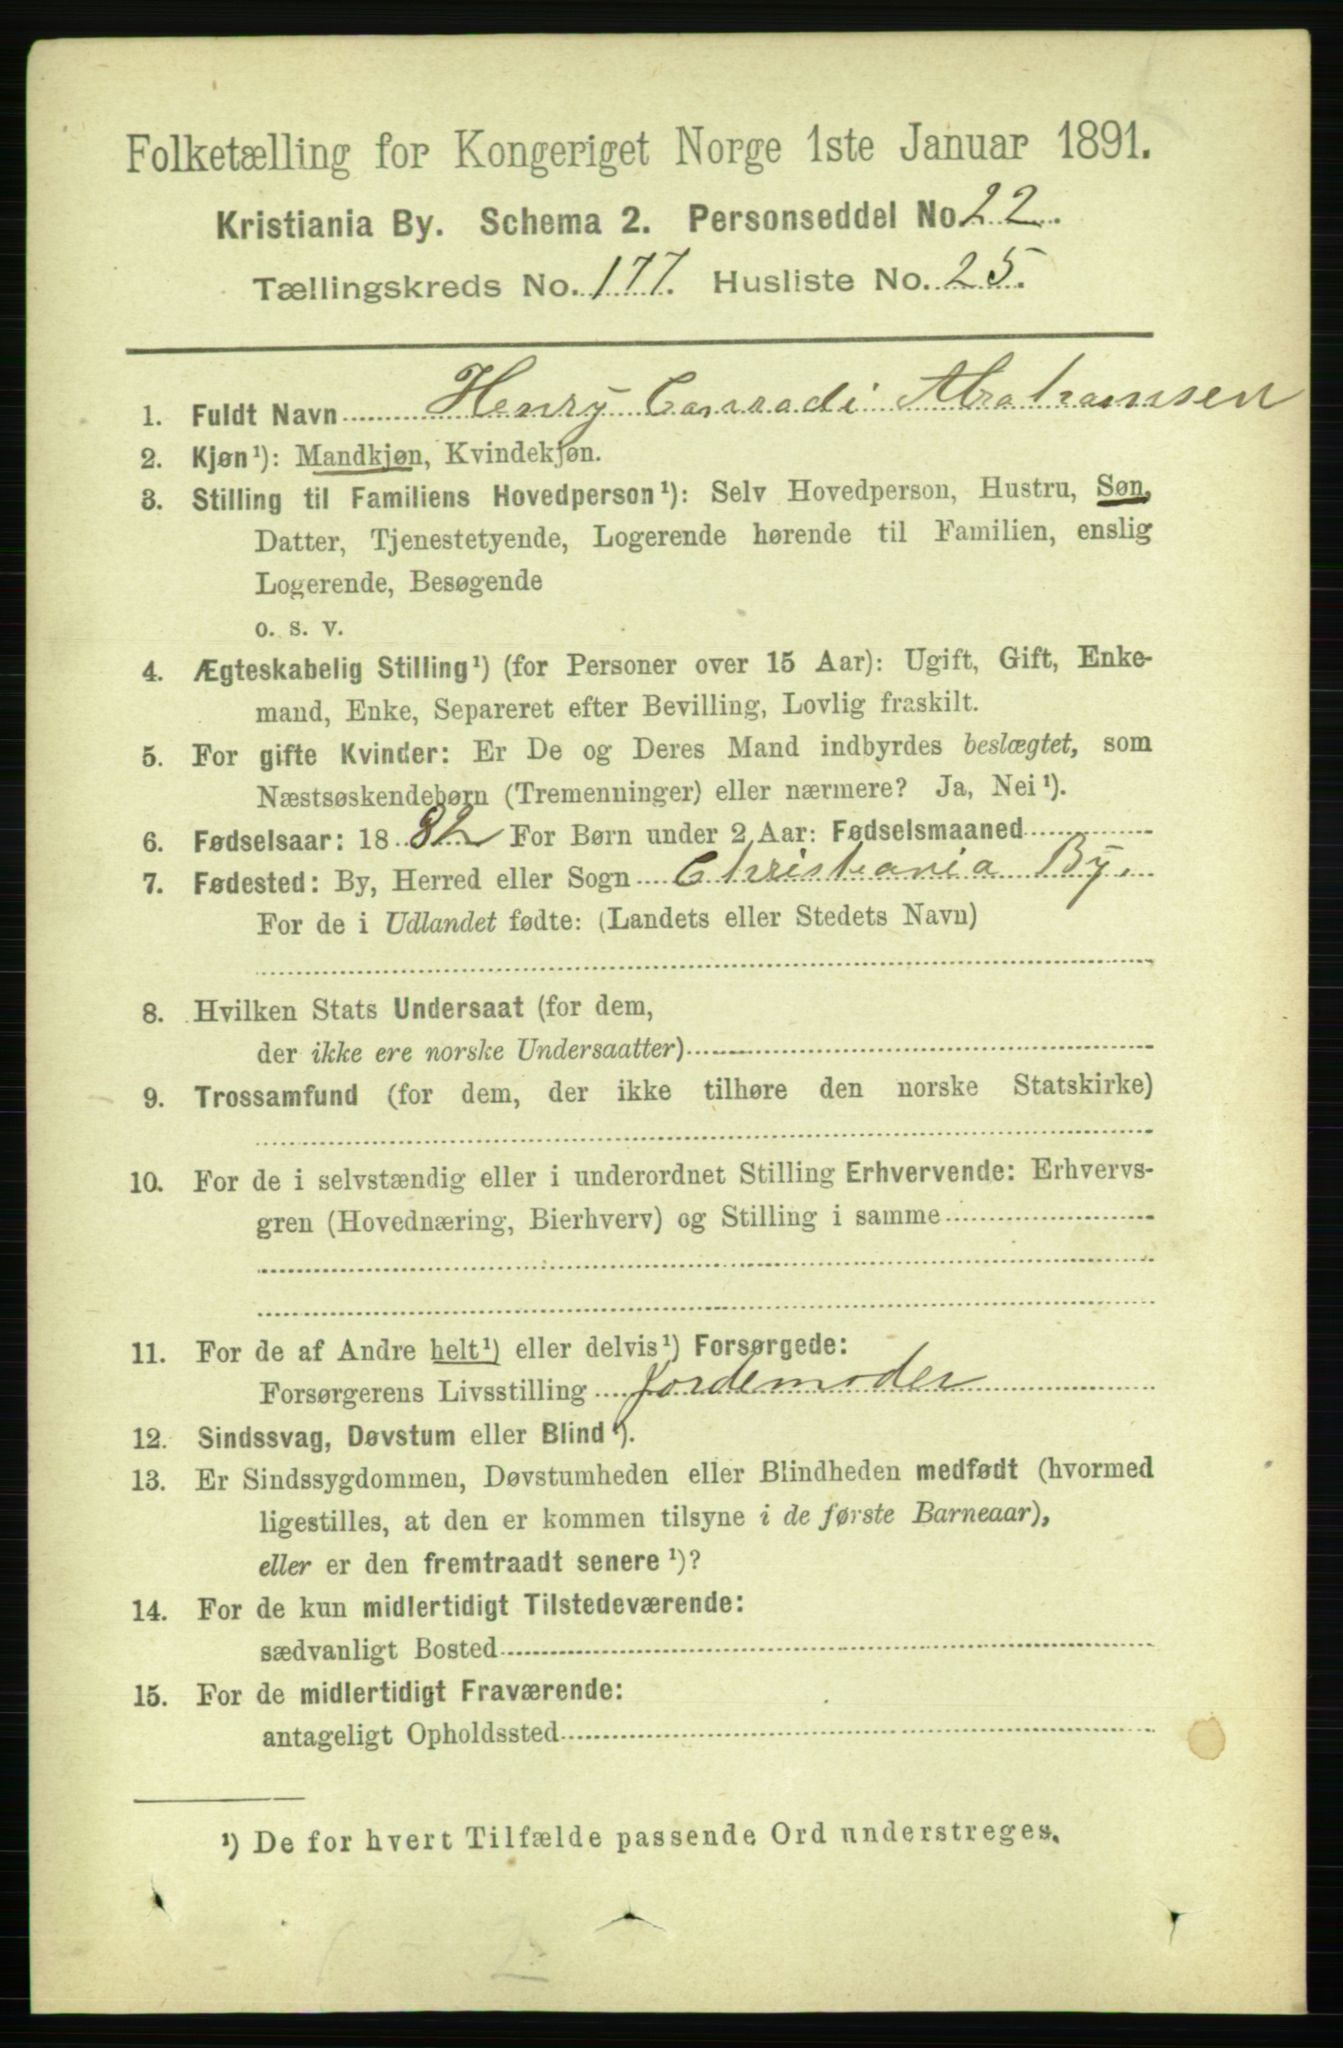 Folketælling for Kongeriget Norge 1ste Januar 1891.
Kristiania By. Schema 2. Personseddel No. 22.
Tællingskreds No. 177. Husliste No. 25.
1. Fuldt Navn Henry Conradi Abrahamsen
2. Kjøn¹): Mandkjøn, Kvindekjøn.
3. Stilling til Familiens Hovedperson¹): Selv Hovedperson, Hustru, Søn,
Datter, Tjenestetyende, Logerende hørende til Familien, enslig
Logerende, Besøgende
o. s. v.
4. Ægteskabelig Stilling¹) (for Personer over 15 Aar): Ugift, Gift, Enke-
mand, Enke, Separeret efter Bevilling, Lovlig fraskilt.
5. For gifte Kvinder: Er De og Deres Mand indbyrdes beslægtet, som
Næstsøskendebørn (Tremenninger) eller nærmere? Ja, Nei¹).
6. Fødselsaar: 1882 For Børn under 2 Aar: Fødselsmaaned
7. Fødested: By, Herred eller Sogn Christiania By.
For de i Udlandet fødte: (Landets eller Stedets Navn)
8. Hvilken Stats Undersaat (for dem,
der ikke ere norske Undersaatter)
9. Trossamfund (for dem, der ikke tilhøre den norske Statskirke)
10. For de i selvstændig eller i underordnet Stilling Erhvervende: Erhvervs-
gren (Hovednæring, Bierhverv) og Stilling i samme
11. For de af Andre helt¹) eller delvis¹) Forsørgede:
Forsørgerens Livsstilling Jordemoder
12. Sindssvag, Døvstum eller Blind¹).
13. Er Sindssygdommen, Døvstumheden eller Blindheden medfødt (hvormed
ligestilles, at den er kommen tilsyne i de første Barneaar),
eller er den fremtraadt senere¹)?
14. For de kun midlertidigt Tilstedeværende:
sædvanligt Bosted
15. For de midlertidigt Fraværende:
antageligt Opholdssted
¹) De for hvert Tilfælde passende Ord understreges.